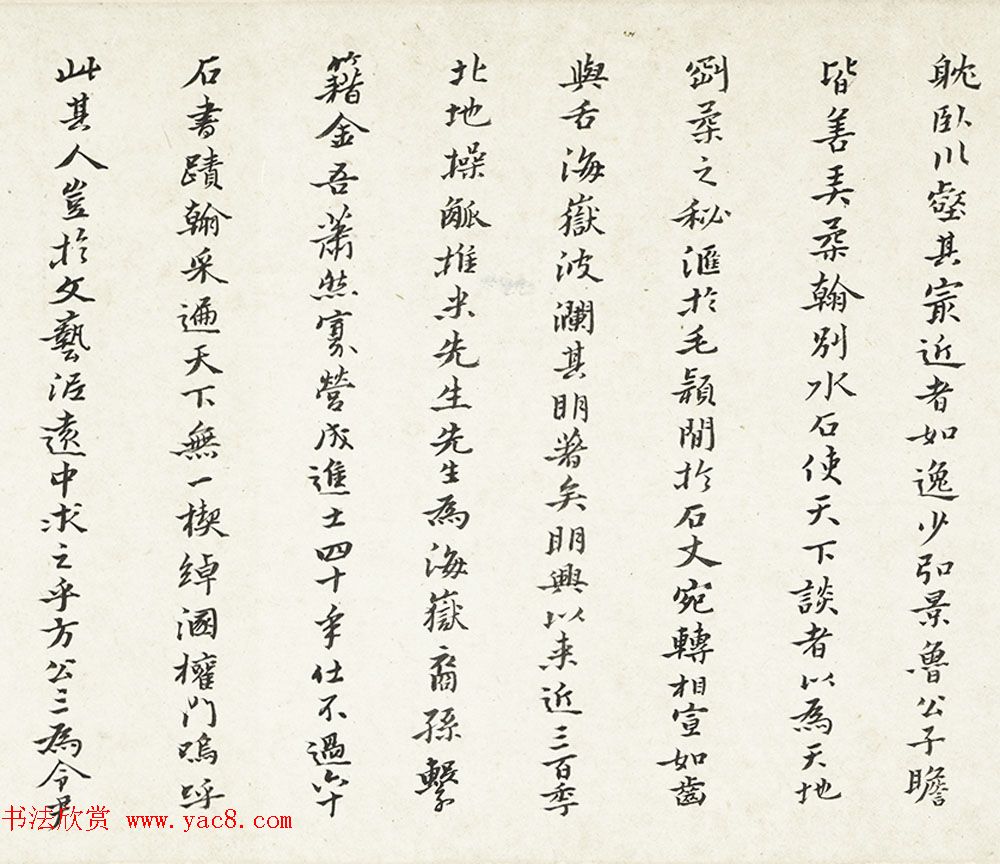 耽臥川壑其寂近者如逸少弘景魯公子瞻
皆善美柔翰別水石使天下談者以為天地
剛柔之秘滙於毛穎間於石丈宛轉相宣如齒
與舌海嶽波瀾其明著矣明興以来近三百季
北地操觚推米先生先生為海嶽裔孫繫
籍金吾蕭然寡營成進士四十年仕不過六十
石書蹟翰采遍天下無一楔綽溷擁門嗚呼
此其人豈於文藝涯遠中求之乎方公三為令尹
书法欣赏 www.yac8.com